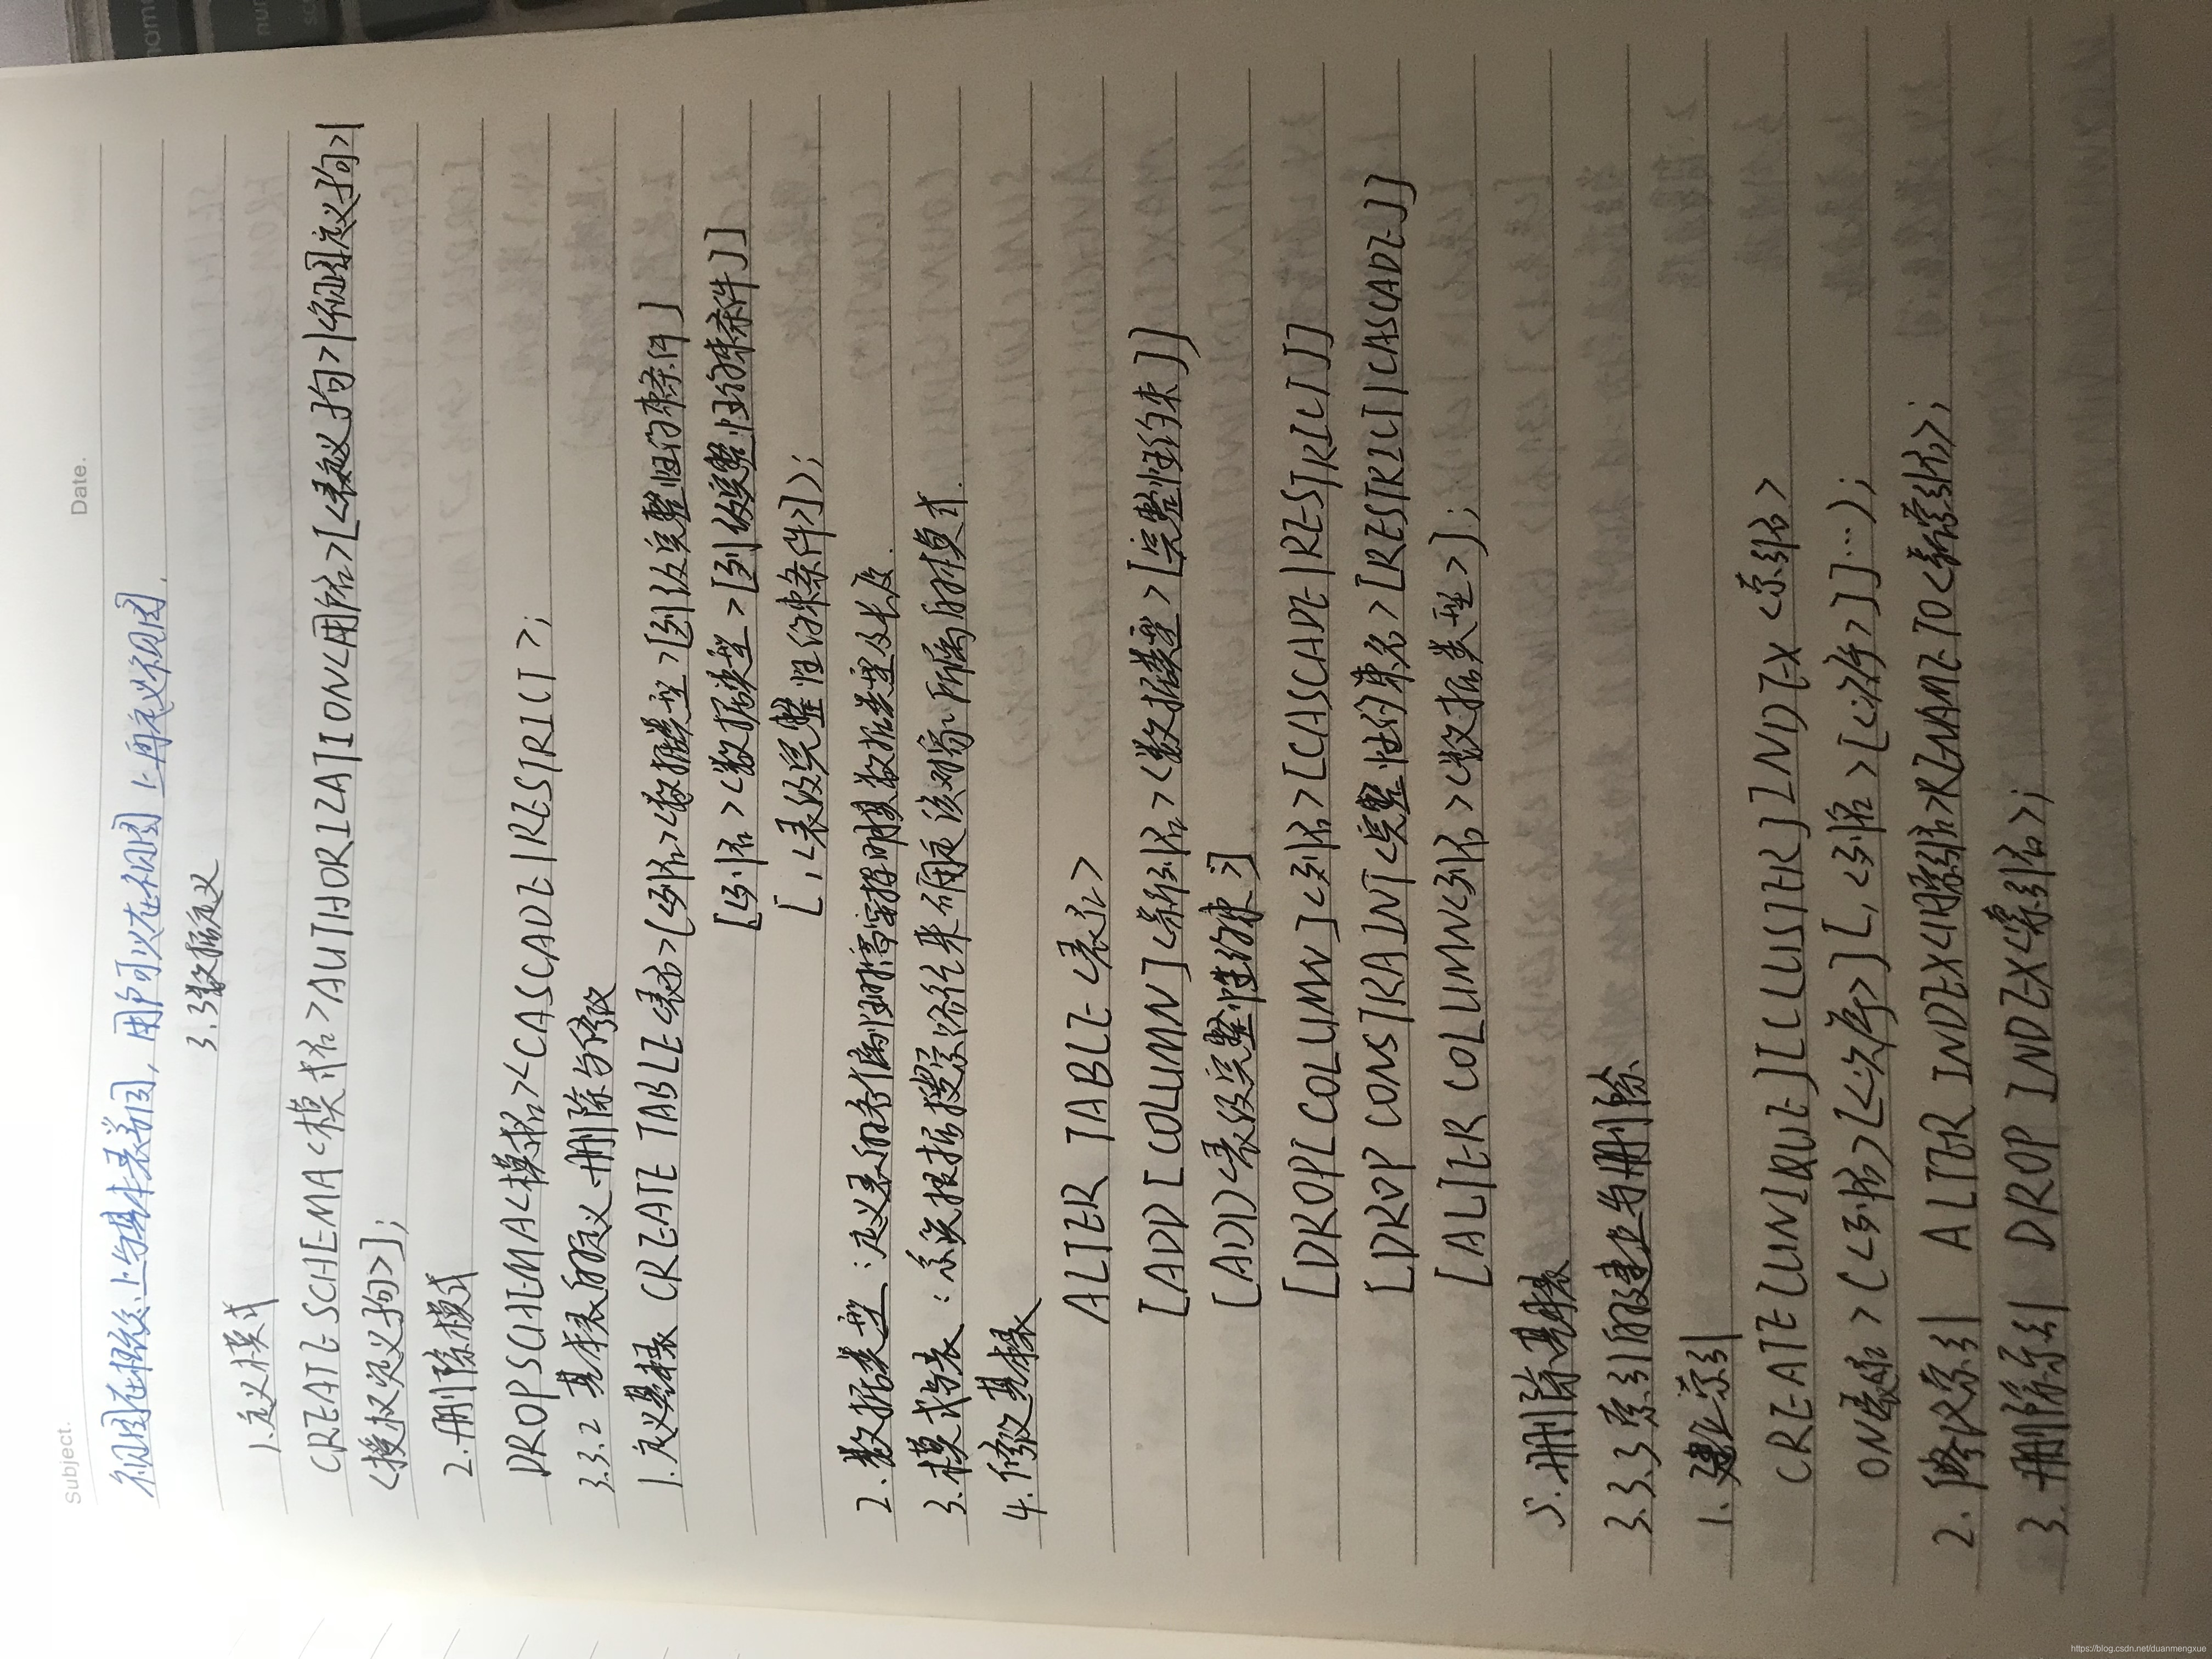 Subject.
Date.
视图在概念上与基本表等同，用户可以在视图上再定义视图.
3.3数据定义
1.定义模式
CREATE SCHEMA<模式名>AUTHORIZATION<用户名>[<表定义子句>|<视图定义子句>|
<授权定义子句>];
2.删除模式
DROP SCHEMA<模式名><CASCADE|RESTRICT>;
3.3.2 基本表的定义、删除与修改
1.定义基本表 CREATE TABLE<表名>(<列名><数据类型>[列级完整性约束条件]
[<列名><数据类型>[列级完整性约束条件]]
[,<表级完整性约束条件>]);
2.数据类型:定义表的各个属性时需要指明其数据类型及长度.
3.模式与表:系统根据搜索路径来确定该对象所属的模式.
4.修改基本表
ALTER TABLE<表名>
[ADD[COLUMN]<新列名><数据类型>[完整性约束]]
[ADD<表级完整性约束>]
[DROP[COLUMN]<列名>[CASCADE|RESTRICT]]
[DROP CONSTRAINT<完整性约束名>[RESTRICT|CASCADE]]
[ALTER COLUMN<列名><数据类型>];
5.删除基本表
3.3.3 索引的建立与删除
1.建立索引
CREATE[UNIQUE][CLUSTER]INDEX<索引名>
ON<表名>(<列名>[<次序>][,<列名>[<次序>]]…);
2.修改索引 ALTER INDEX<旧索引名>RENAME TO<新索引名>;
3.删除索引 DROP INDEX<索引名>;
https://blog.csdn.net/duanmengxue